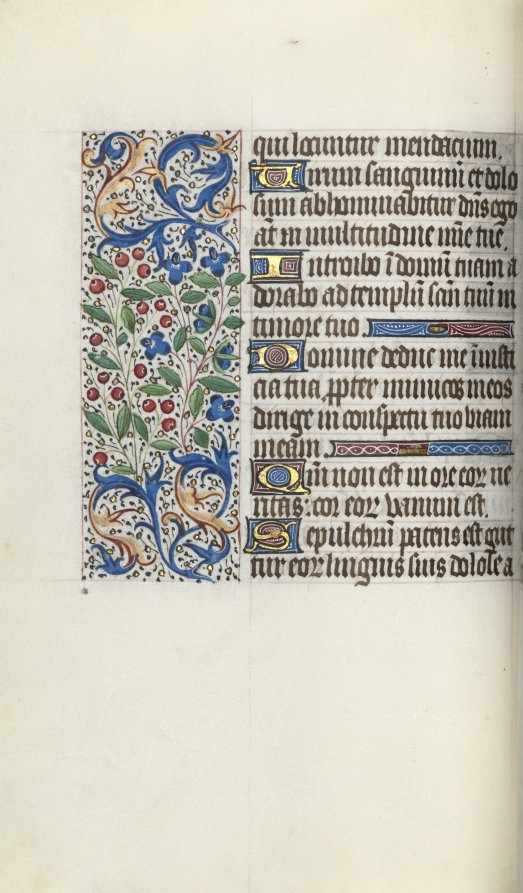 qui locuntur mendacium.
Virum sanguinū et dolo
sum abhominabitur dn̄s ego
aūt in multitudine mīe tue.
Introibo ī domū tuam a
dorabo ad templū san tuū in
timore tuo.
Domine deduc me ī iusti
cia tua ꝓpter inimicos meos
dirige in conspectu tuo viam
meam.
Qm̄ non est in ore eoꝝ ue
ritas: cor eoꝝ vanum est.
Sepulchrū patens est gut
tur eoꝝ linguis suis dolose a